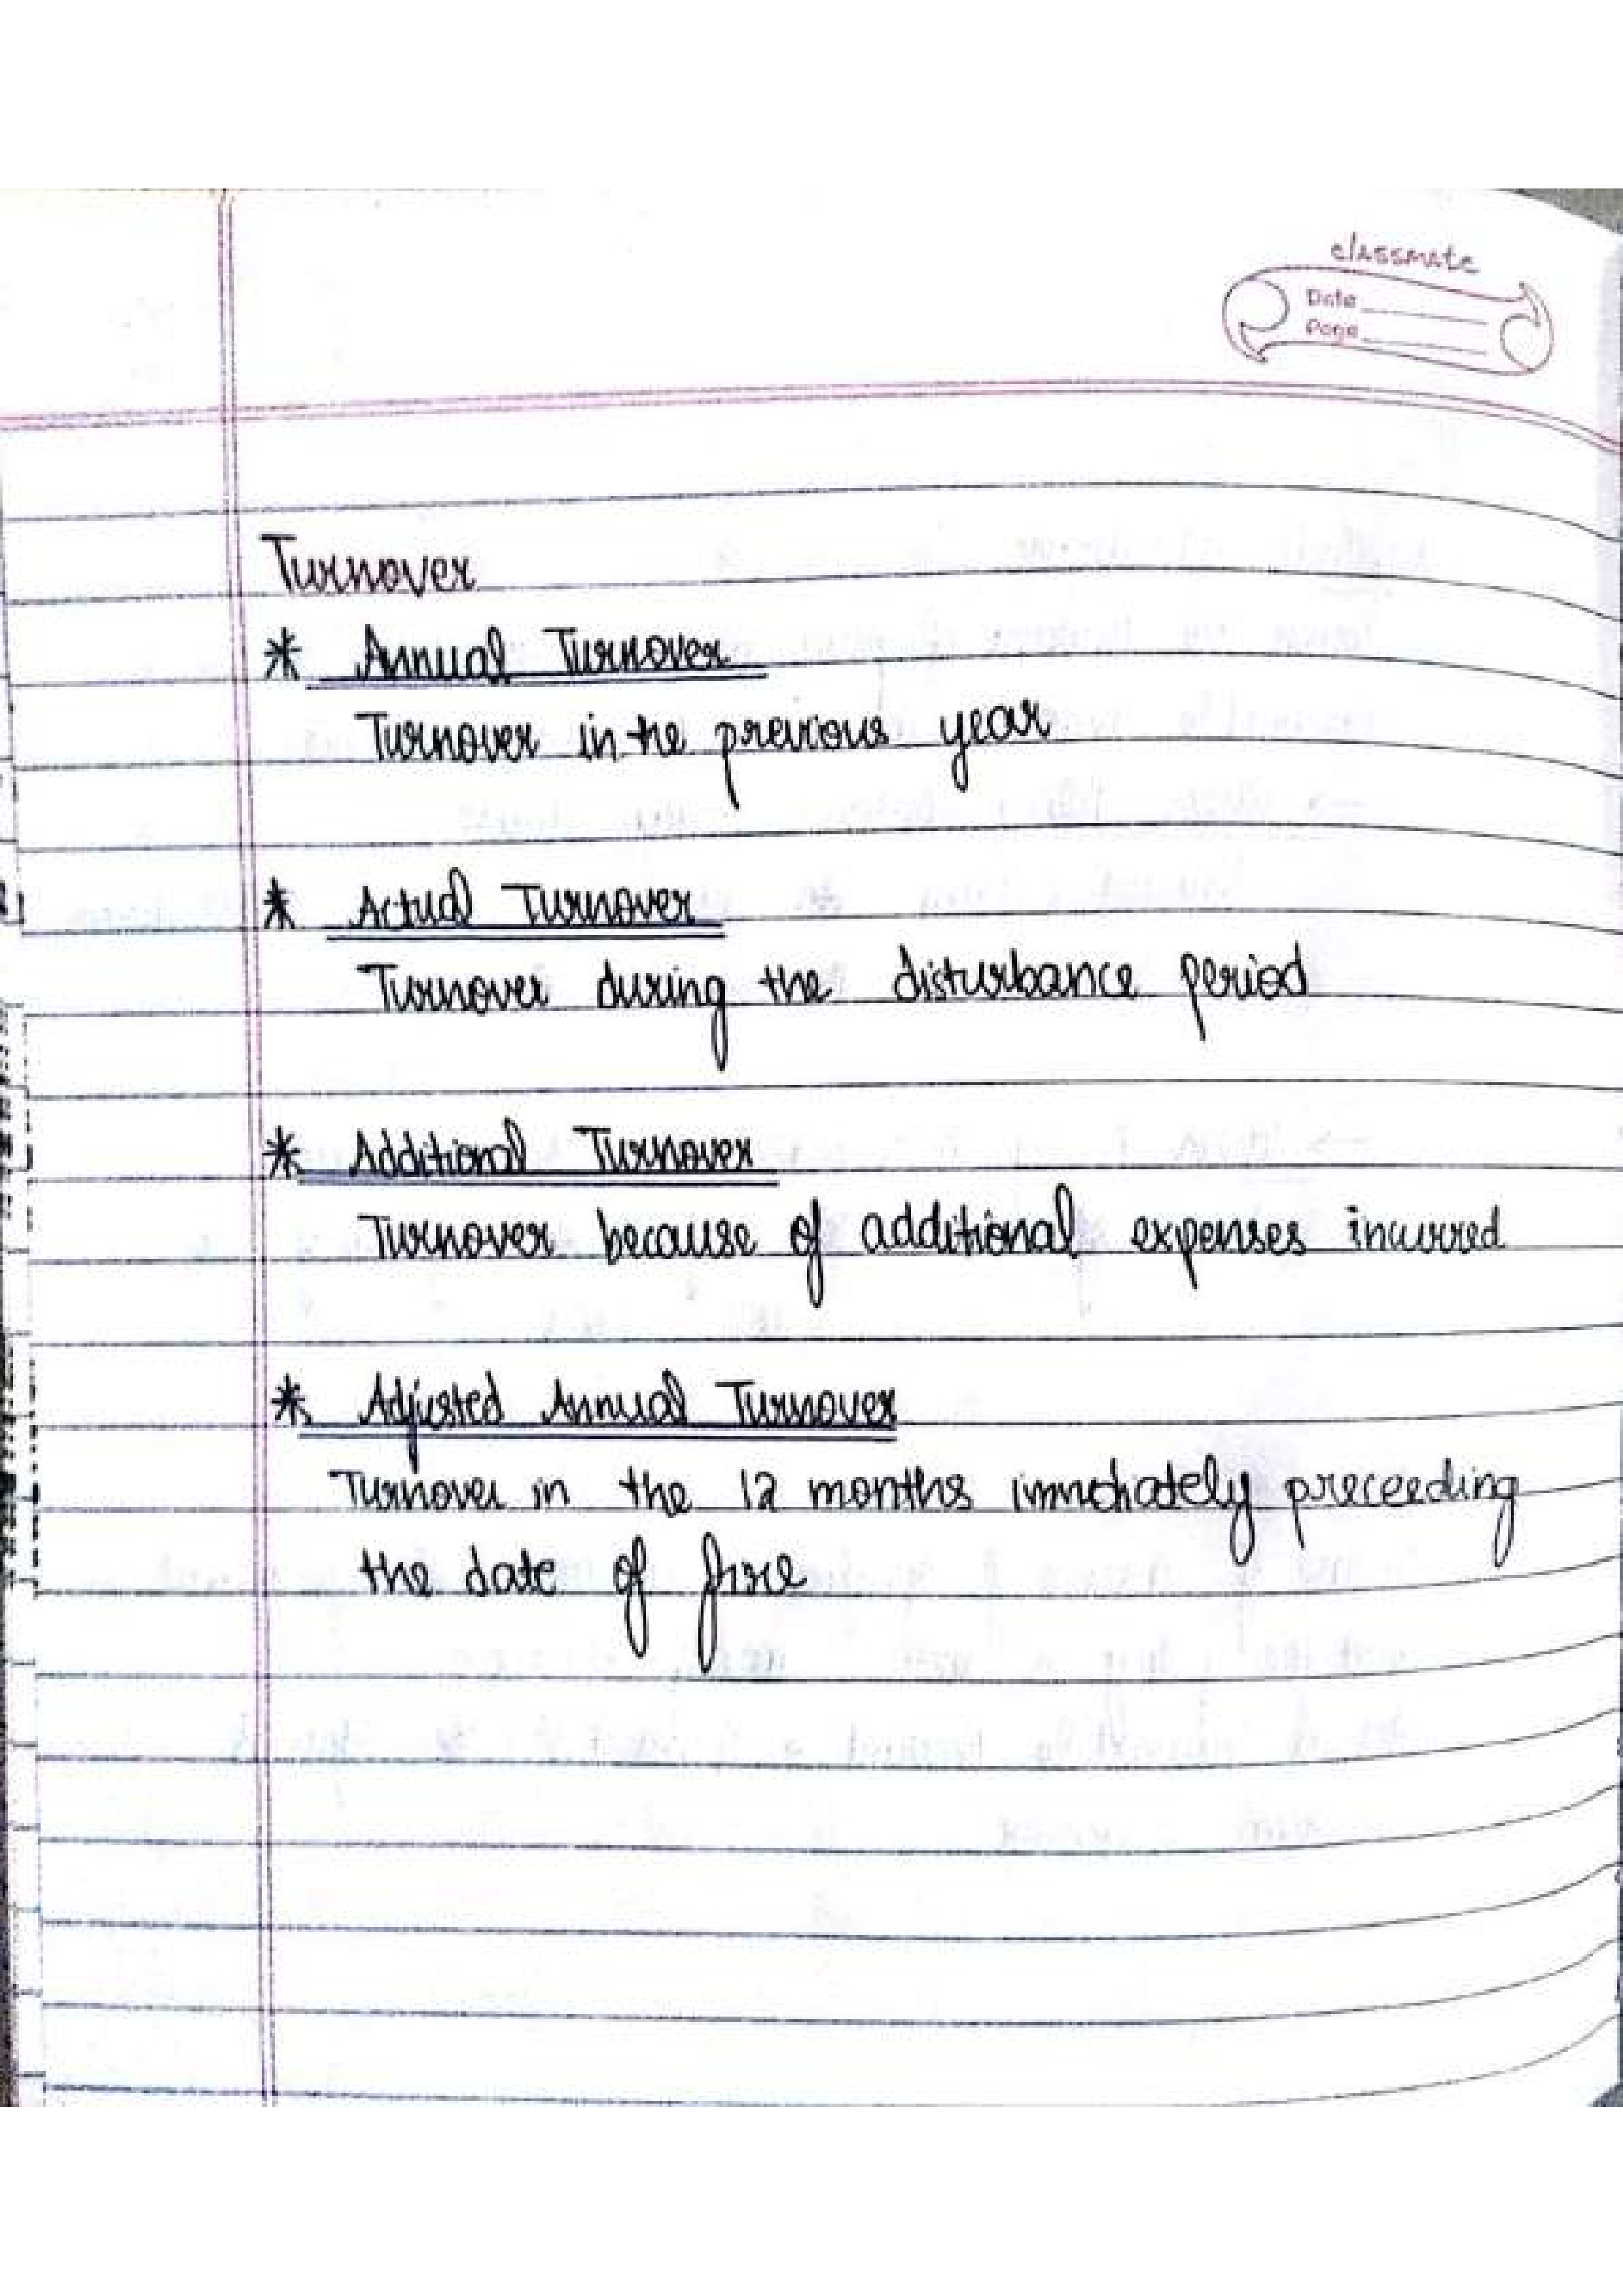 classmate
Date
Page
Turnover
* Annual Turnover
Turnover in the previous year
* Actual Turnover
Turnover during the disturbance period
* Additional Turnover
Turnover because of additional expenses incurred
* Adjusted Annual Turnover
Turnover in the 12 months immediately preceeding
the date of fire